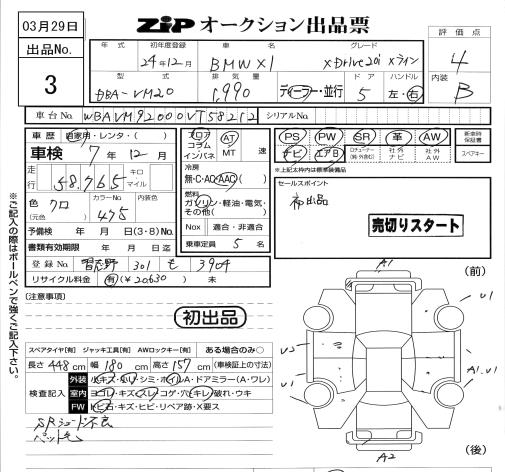 03月29日
出品No.
3
ZIP オークション出品票
評価点
4
内装
B
年式 初年度登録 車名 グレード
24年12月 BMW X1 xDrive20i xライン
型式 排気量 ドア ハンドル
DBA-VM20 1,990 ディーラー・並行 5 左・右
車台No. WBAVM92000VT58212 シリアルNo.
車歴 自家用・レンタ・( )
車検 7年 12月
走行 58,765 キロ マイル
色 クロ (元色) カラーNo. 475 内装色
予備検 年 月 日(3・8)No.
書類有効期限 年 月 日迄
登録No. 習志野 301 も 3904
リサイクル料金 有(¥20,630) 未
フロア コラム インパネ AT MT 速
冷房
無・C・AC・AAC
燃料
ガソリン・軽油・電気・その他( )
Nox 適合・非適合
乗車定員 5 名
PS PW SR 革 AW 新車時保証書
ナビ エアB ロチューナー(純外含む) 社外ナビ 社外AW スペアキー
*上記太枠内は標準装備品
セールスポイント
初出品
売切りスタート
※ご記入の際はボールペンで強くご記入下さい。
[注意事項]
初出品
スペアタイヤ[有] ジャッキ工具[有] AWロックキー[有] ある場合のみ○
長さ 448 cm 幅 180 cm 高さ 157 cm (車検証上の寸法)
検査記入
外装 小キズ・凹リ・シミ・ホイルA・ドアミラー(A・ワレ)
室内 ヨゴレ・キズ・スレ・コゲ・穴・キレ・破れ・ウキ
FW トビ石・キズ・ヒビ・リペア跡・X要ス
SRシェード不良
ペット毛
(前)
A1
U1
U2
U1
U1
A1.U1
A2
(後)